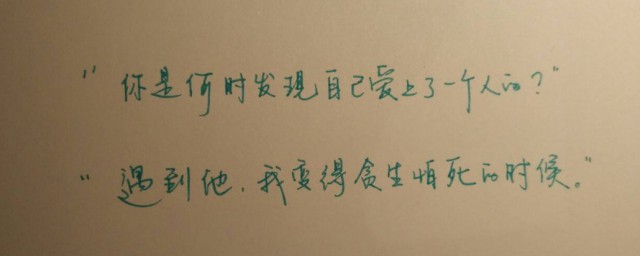 “你是何时发现自己爱上了一个人的？”
“遇到他，我变得贪生怕死的时候。”